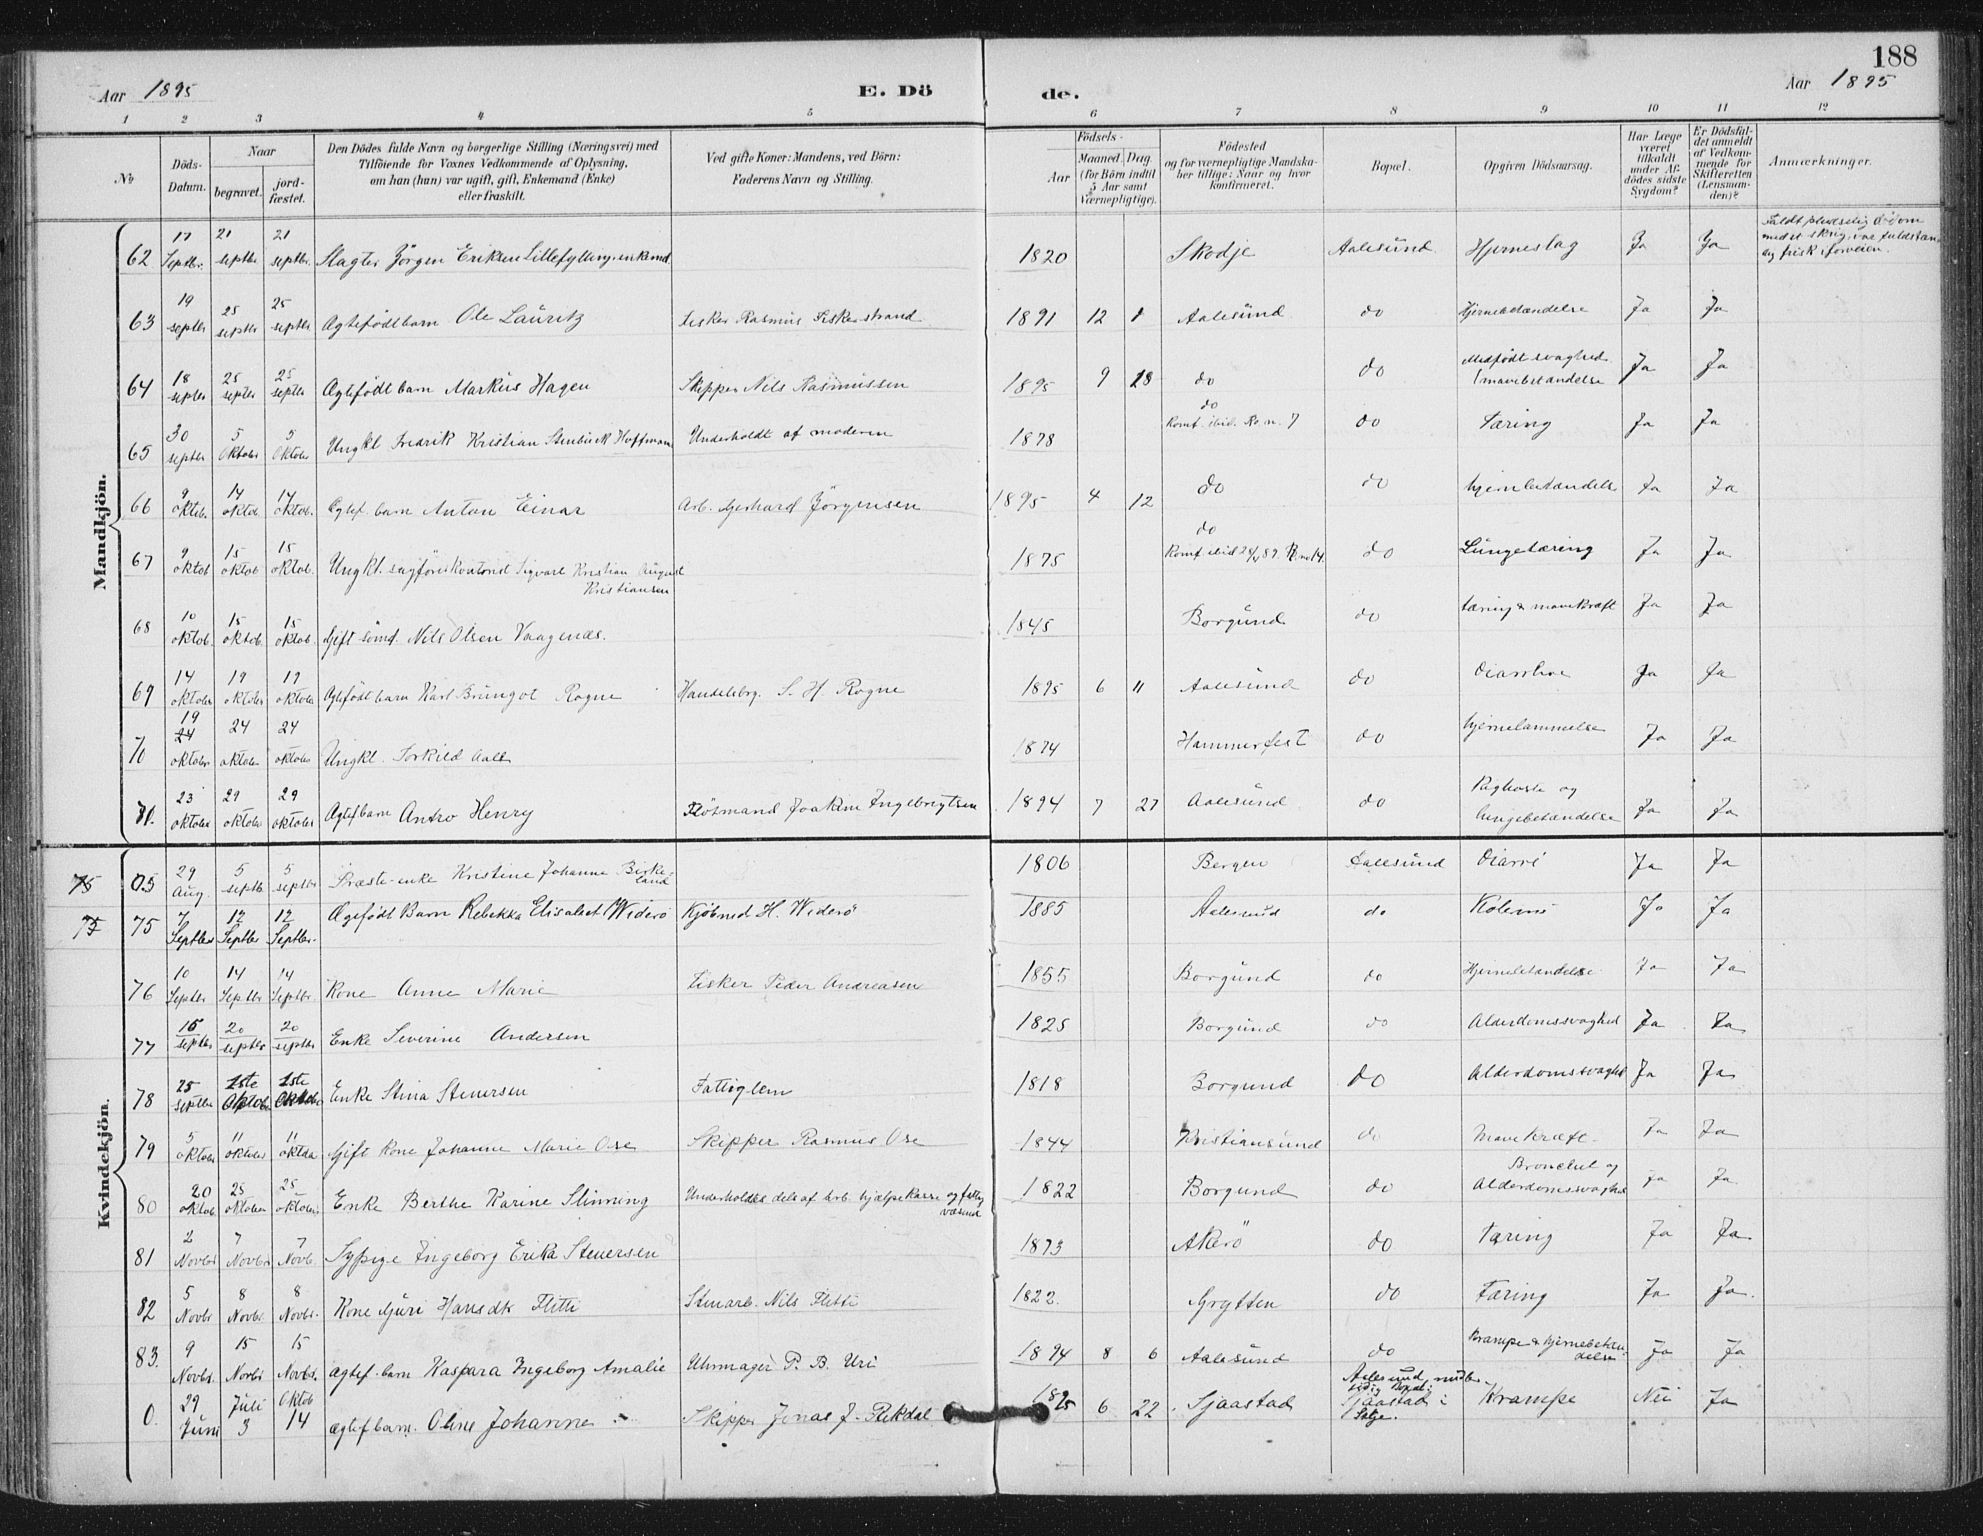 188
Aar 1895 E. Döde. Aar 1895
1 2 3 4 5 6 7 8 9 10 11 12
No
Döds-Datum.
Naar
begravet. jordfæstet.
Den Dödes fulde Navn og borgerlige Stilling (Næringsvei) med
Tilföiende for Voxnes Vedkommende af Oplysning,
om han (hun) var ugift, gift, Enkemand (Enke)
eller fraskilt.
Ved gifte Koner: Mandens, ved Börn:
Faderens Navn og Stilling.
Födsels-
Aar Maaned. Dag.
(for Börn indtil
5 Aar samt
Værnepligtige).
Födested
og for værnepligtige Mandskaber tillige: Naar og hvor
konfirmeret.
Bopæl.
Opgiven Dödsaarsag.
Har Læge
været
tilkaldt
under Afdödes sidste
Sygdom?
Er Dödsfaldet anmeldt
af Vedkommende for
Skifteretten
(Lensmanden)?
Anmærkninger.
Mandkjön.
62 17 Septbr. 21 septbr 21 septbr. Slagter Jörgen Eriksen Lillefylling, enkemd 1820 Skodje Aalesund Hjerneslag Ja Ja Faldt pludselig död om
med et skrig, var fuldstændig frisk iforveien.
63 19 septbr 25 septbr 25 septbr Ægtefödt barn Ole Lauritz Fisker Rasmus Fiskerstrand 1891 12 Aalesund do Hjernebetændelse Ja Ja
64 18 septbr 25 septbr 25 septbr Ægtefödt barn Markus Hagen Skipper Nils Rasmussen 1895 9 do do Medfödt svaghed
/mavebetændelse Ja Ja
65 30 septbr 5 Oktober 5 Oktober Ungkl Fredrik Kristian Stenbuck Hoffman Underholdt af moderen 1878 do
Konf. ibid. No 7 do Tæring Ja Ja
66 9 oktob. 14 oktob. 14 oktob. Ægtef. barn Anton Einar Arb. Gerhard Jörgensen 1895 4 12 do do hjernbetændelse Ja Ja
67 9 oktob 15 oktob 15 oktob. Ungkl. Sigvart Kristian August
Kristiansen 1875 do
Konf ibid 89 14. do Lungetæring Ja Ja
68 10 oktob. 15 oktob. 15 oktob. Gift sömd. Nils Olsen Vaagenæs. 1845 Borgund do tæring & mavekræft Ja Ja
69 14 oktober 19 oktober 19 oktober Ægtefödt barn Karl Brungot Rogne Handelsbrg. S. H Rogne 1895 6 11 Aalesund do Diarrhoe Ja Ja
70 19 24 oktober 24 oktober 24 oktober Ungkl. Torkild Aall 1874 Hammerfest do hjernelammelse Ja Ja
71. 23 oktober 29 oktober 29 oktober Ægtef barn Antro Henry Joakim Ingebrigtsen 1894 7 27 Aalesund do Kighoste og
lungebetændelse Ja Ja
Kvindekjön.
75 05 29 Aug. 5 septb 5 septbr Præste-enke Kristine Johanne Birkeland 1806 Bergen Aalesund Diarré Ja Ja
75 7 Septber 12 Septber 12 Septber. Ægefödt Barn Rebekka Elisabet Widerö Kjöbmd H. Widerö 1885 Aalesund do Ja Ja
76 10 Septbr 14 Septbr 14 Septbr. Kone Anne Marie Fisker Peder Andreasen 1855 Borgund do Hjernebetændelse. Ja Ja
77 15 septbr 20 septbr 20 septbr Enke Severine Andersen 1825 Borgund do Alderdomssvaghed Ja Ja
78 25 septbr 1ste Oktober 1ste Oktober Enke Stina Stenersen Fattiglem 1818 Borgund do Alderdomssvaghed Ja Ja
79 5 oktober 11 oktober 11 oktober Gift kone Johanne Marie Ose Skipper Rasmus Ose 1844 Kristiansund do Mavekræft. Ja Ja
80 20 oktob 25 oktober 25 oktober. Enke Berthe Karine Slinning Underholdtes dels af Arb. hjælpekasse og fattigvæsend 1822 Borgund do Bronchit og
Alderdomssvaghed Ja Ja
81 2 Novbr 7 Novbr 7 Novb. Sypige Ingeborg Erika Stenersen 1873 Akerö do Tæring Ja Ja
82 5 Novbr 8 Novbr. 8 Novbr. Kone Guri Hansdtr Flitti Stenarb. Nils Flitti 1822. Grytten do Tæring Ja Ja.
83. 9 Novbr. 15 Novbr 15 Novbr. ægtef. barn Kaspara Ingeborg Amalie Uhrmager P. B. Uri 1894 8 6 Aalesund do Krampe & hjernebetændelse Ja Ja
0. 29 Juni Juli 3 Oktob 14 ægtef barn. Oline Johanne Skipper Jonas J. Flekdal 1895 6 22 Sjaastad Aalesund, midlertidig Bopæl:
Sjaastad i Krampe Nei Ja